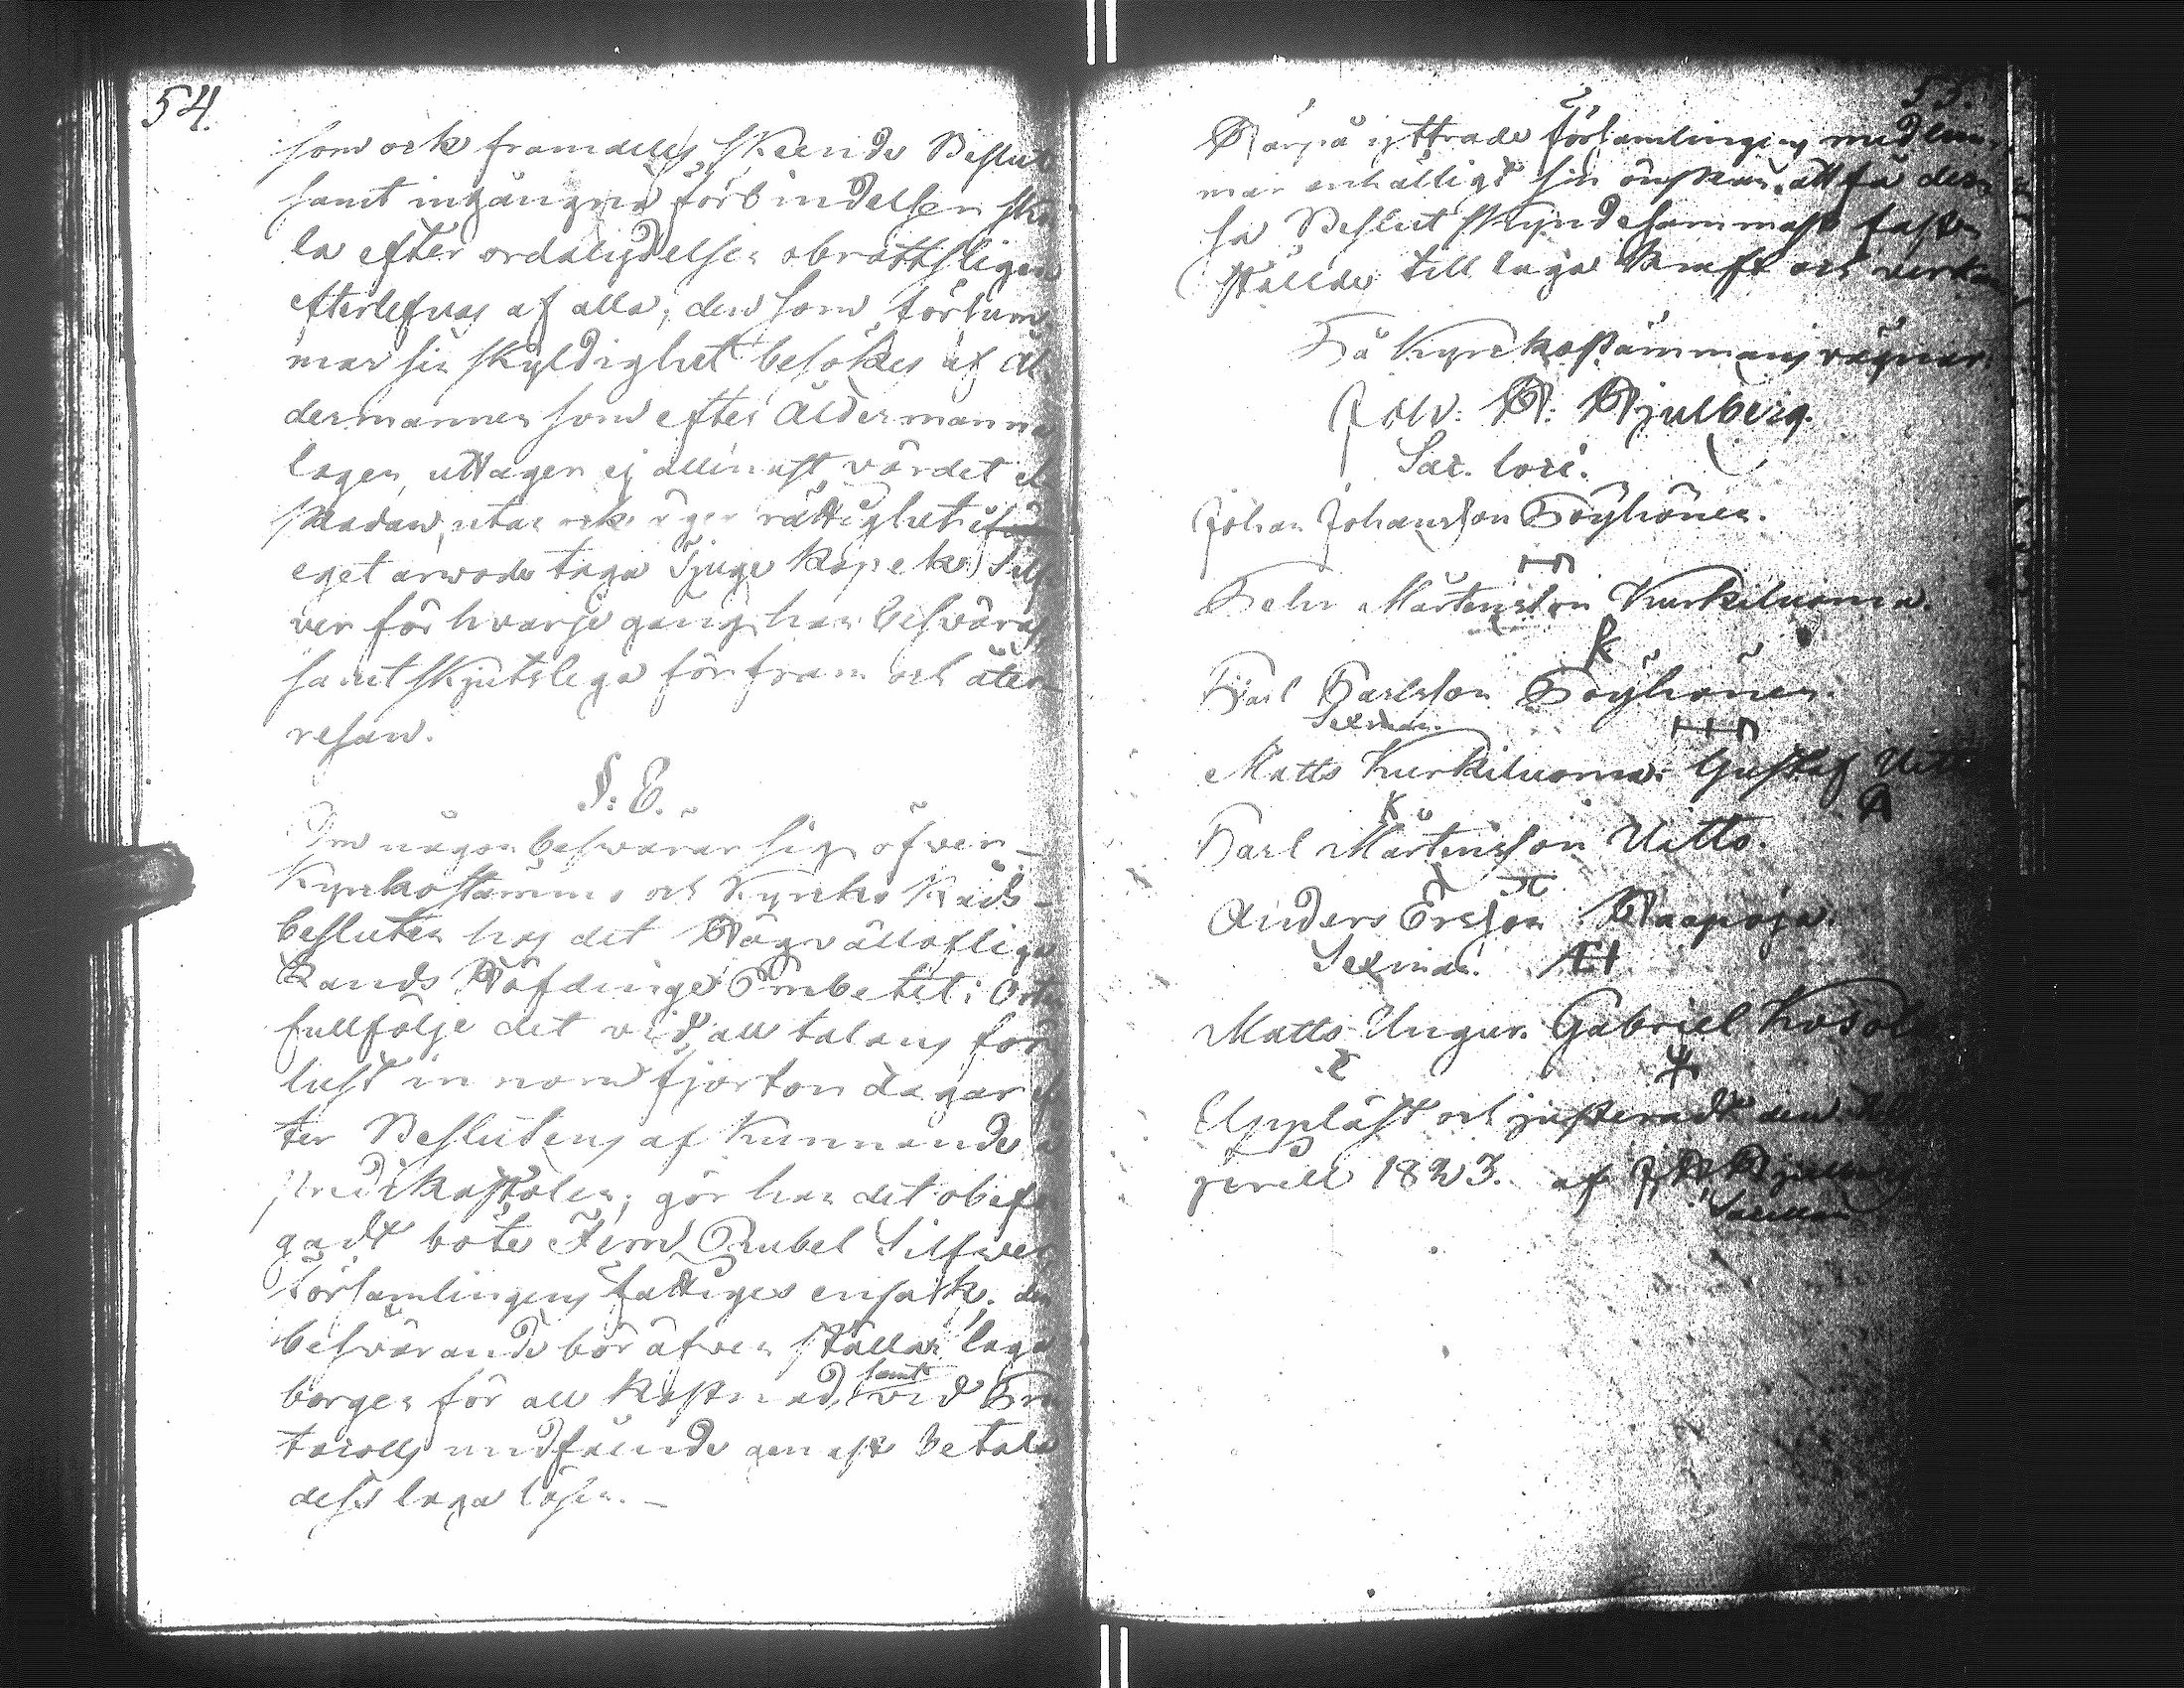 54.
som ock framdeles skeende Beslut
samt ingångna förbindelser ska
la efter ordalydelsen obrottsligen
efterlefvas af alla; den som försum
mar sin skyldighet besökes af Ål
dermannen som efter Åldermanna
lagen, uttager ej allenast värdet el
skadan, utan ock äger rättighet
eget arvode taga Tjugo kopek Silf
ver för hvarje gång han besväras
samt skjutslega för fram och åter
resan.
§: 8.
Om någon besvärar sig öfver
Kyrkostämmo och Kyrko Råds
besluten hos det Högvällofliga
Lands Höfdinge Embetet i Orten
fullfölje det vid all talans för
lust innom fjorton dagar ef
ter Beslutens afkunnande
predikostolen; gör han det obefo
gadt böte Fem Rubel Silfver
Församlingens fattiges ensak; den
besvärande bör äfven ställa laga
borgen för all kostnad, samt vid Pro
tocolls undfående genast betala
dess laga lösen.
55.
Härpå yttrade Församlingens medlem
mar enhälligt sin önskan att få des
sa Beslut skyndesammast fast
ställde till laga kraft och verkan
På Kyrkostämmans vägnar
Joh: H: Hjulberg.
Sac. loci.
Johan Johansson Pöyhönen.
Pehr Mårtensson Kurkiluoma.
Karl Karlsson Pöyhönen.
Sexman.
Matts Kurkiluoma. Gustaf Uitto
K
A
Karl Mårtensson Uitto.
Anders Ersson Haapoja.
Sexman. AH
Matts Ungur. Gabriel Kosol
Uppläst och justeradt den
1823. af J H Hjulberg